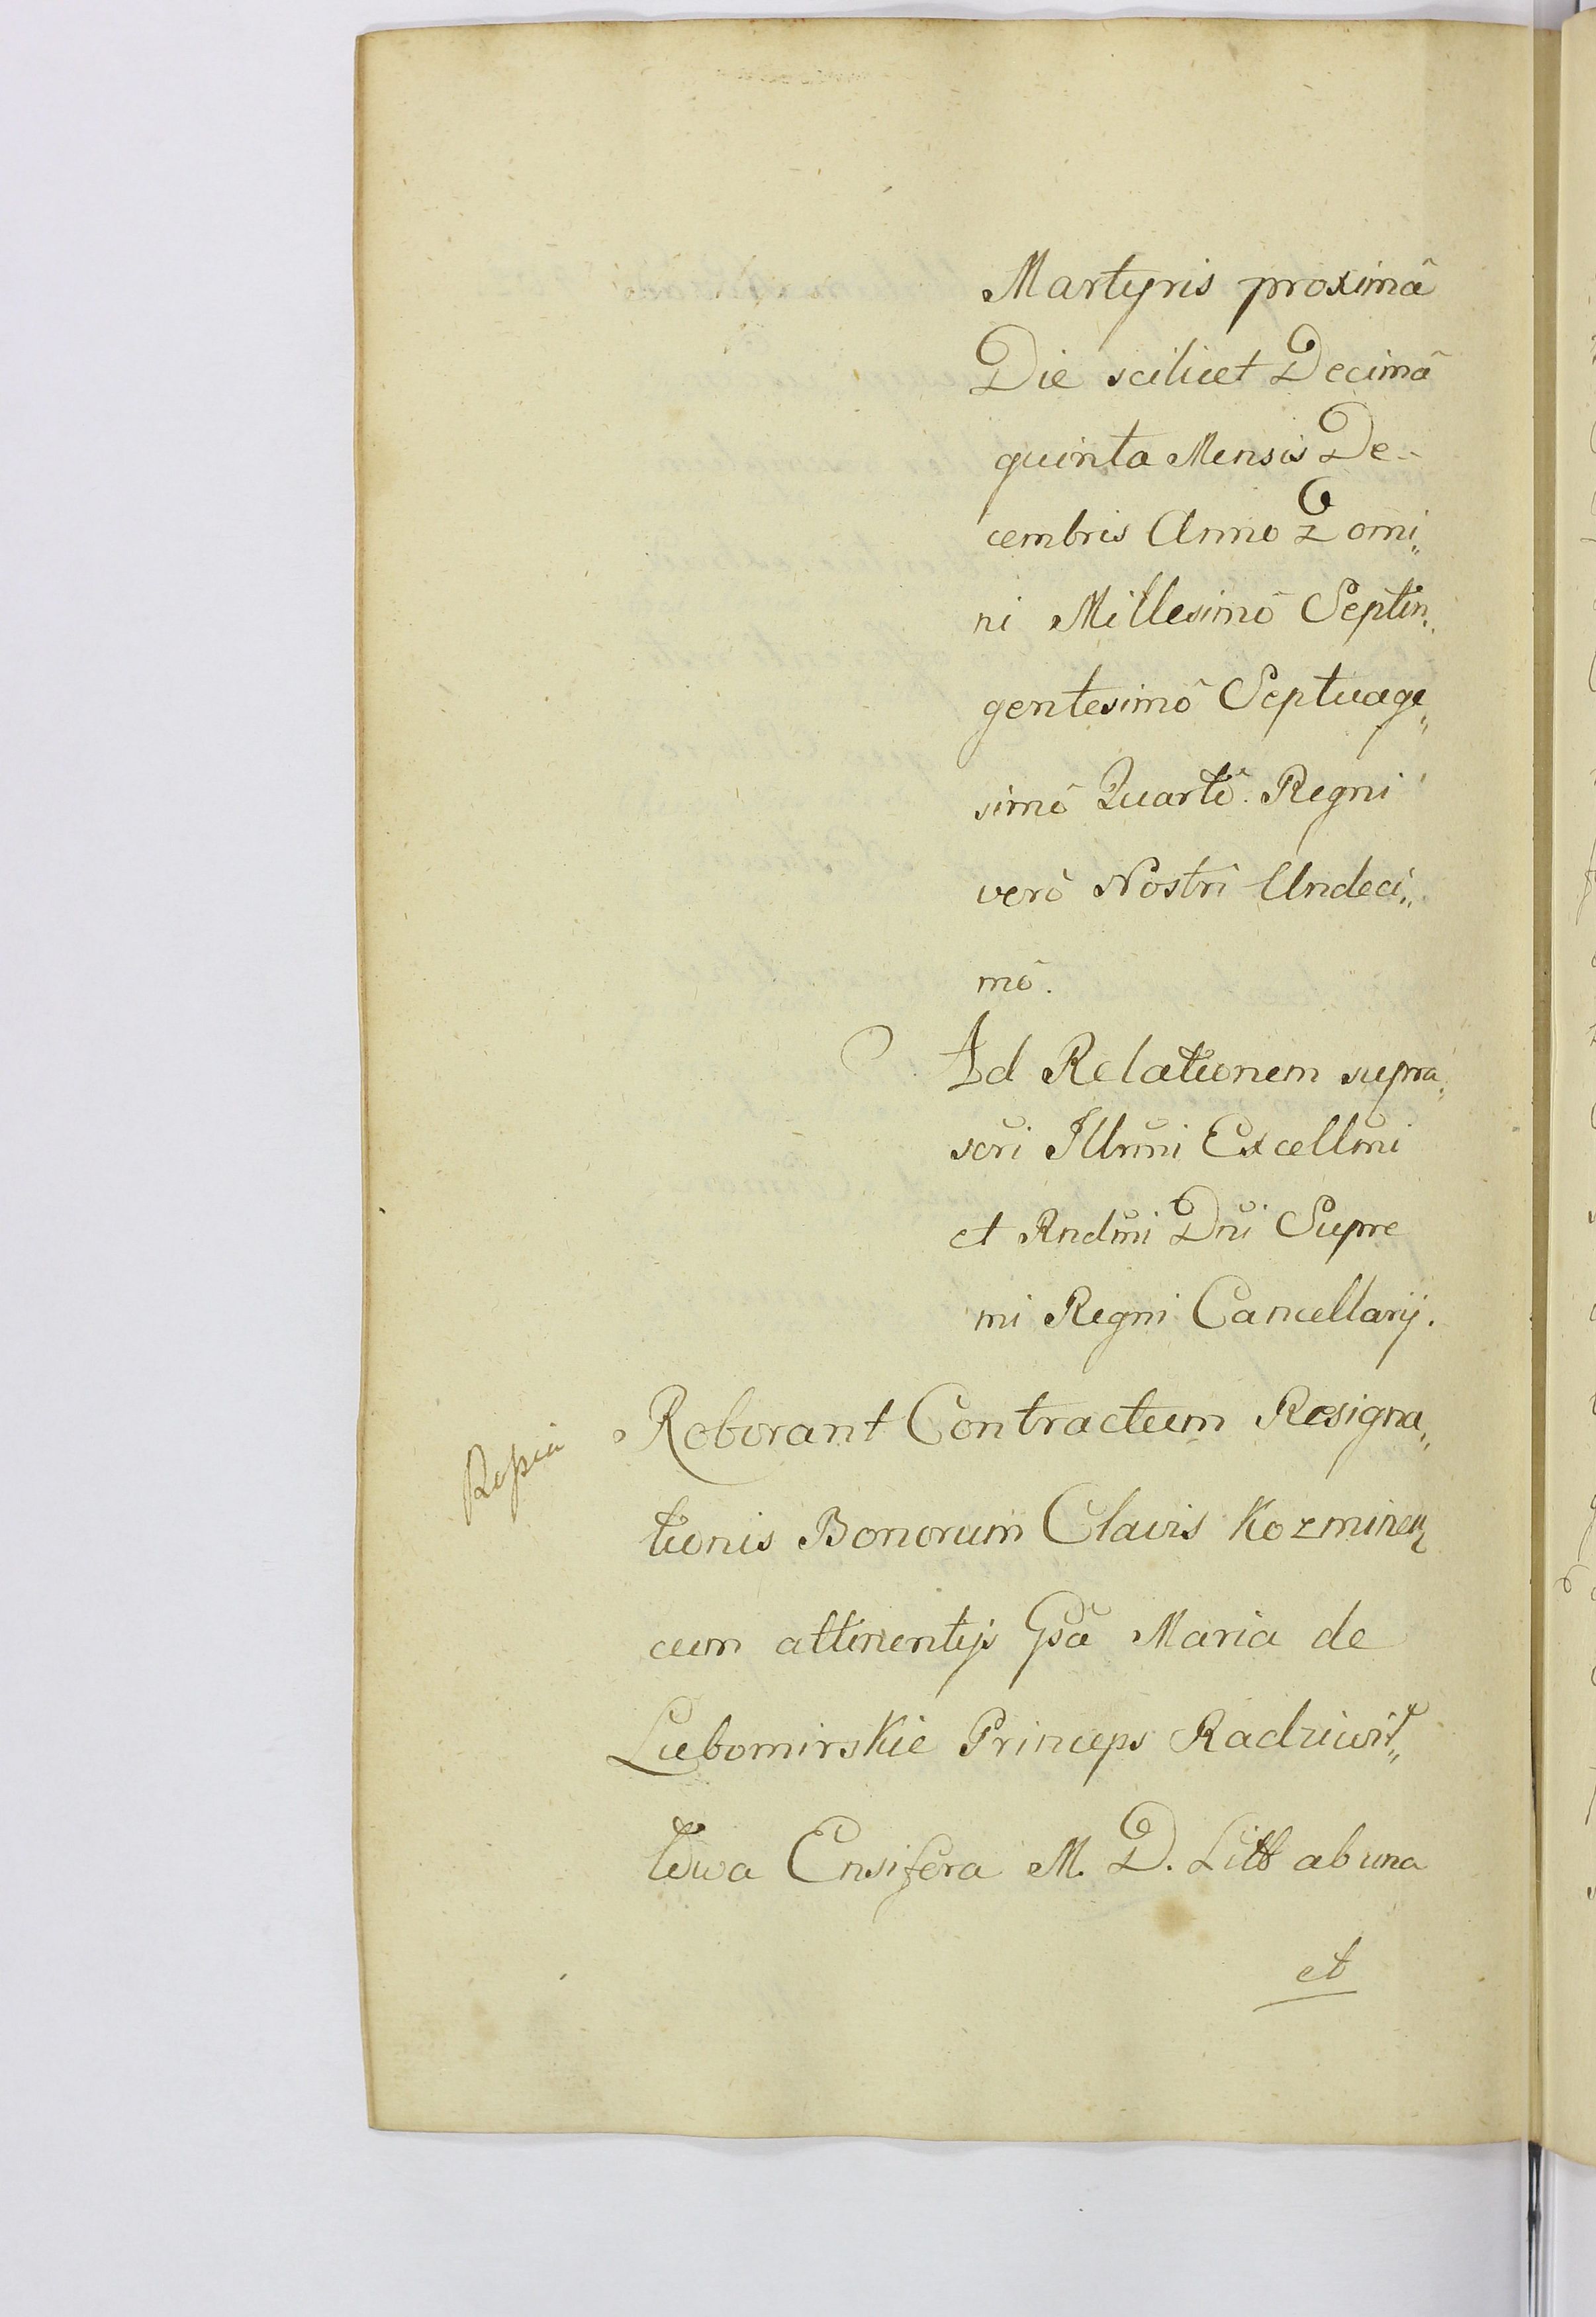 Martyris proximâ
Die scilicet Decimâ
quinta Mensis De-
cembris Anno Domi„
ni Millesimô Septin„
gentesimô Septuage„
simô Quartô. Regni
verô Nostri Undeci„
mô.
Ad Relationem supra„
scri Illrmi Excellmi
et Rndmi Dni Supre
mi Regni Cancellarij.
Roborant Contractum Resigna„
tionis Bonorum Clavis Kozminen
cum attinentijs Gsa Maria de
Lubomirskie Princeps Radziwił„
łowa Ensifera M. D. Litt ab una
et